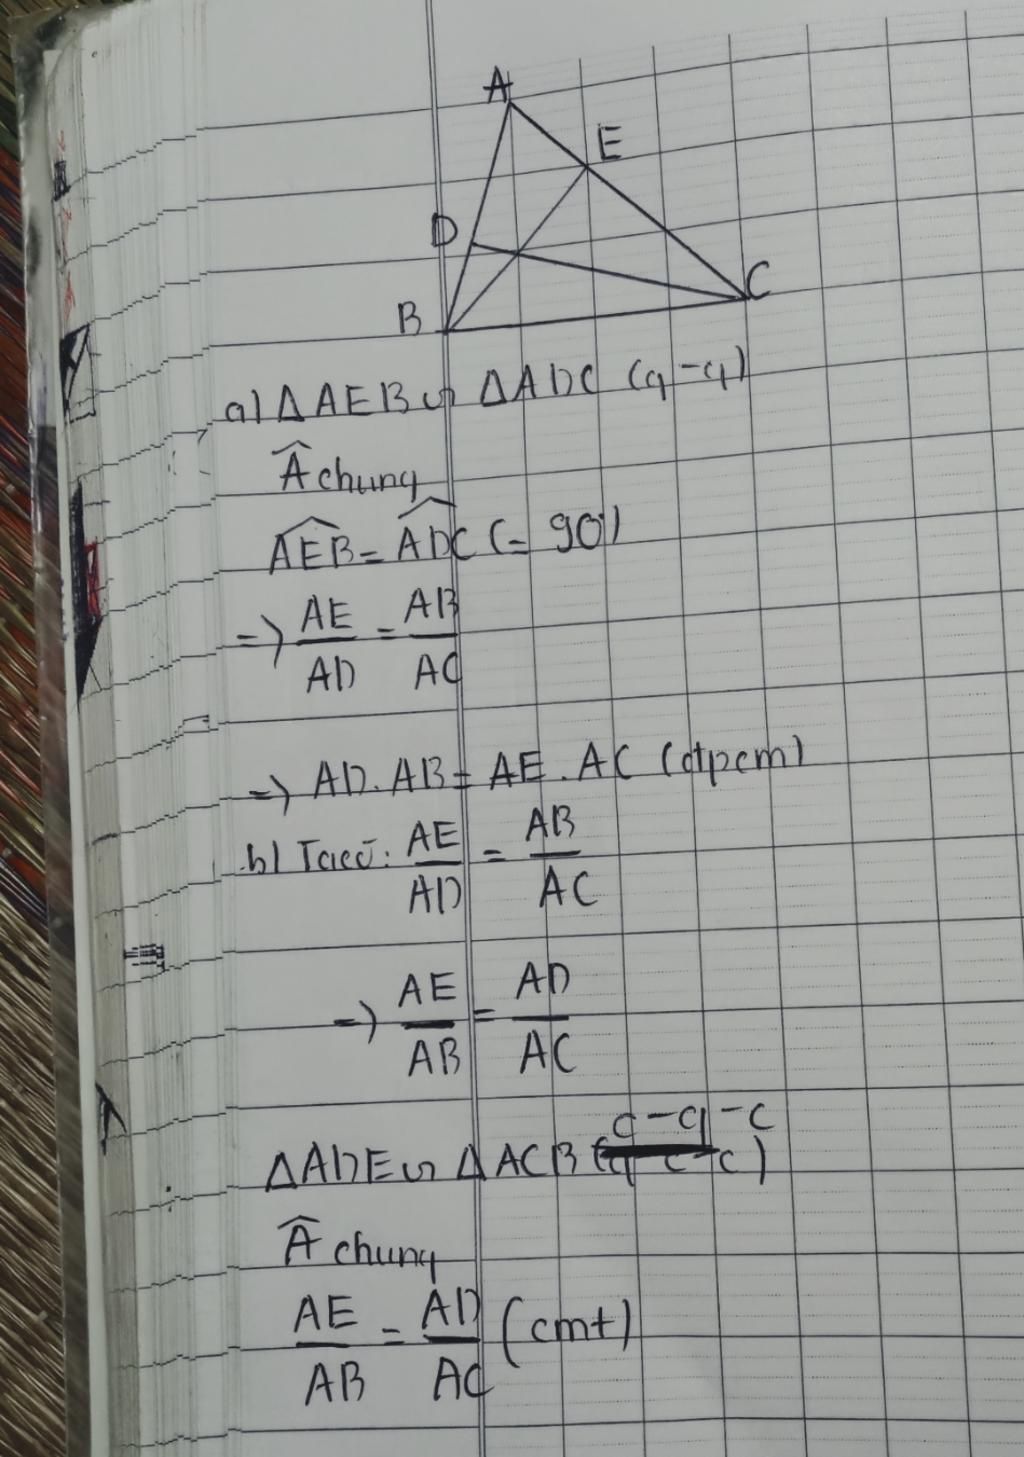 A
E
D
C
B
a) ΔAEB ∽ ΔADC (g-g)
Â chung
AEB = ADC (= 90°)
=> AE/AD = AB/AC
=> AD.AB = AE.AC (đpcm)
b) Ta có: AE/AD = AB/AC
=> AE/AB = AD/AC
c-g-c
ΔADE ∽ ΔACB ( )
Â chung
AE/AB = AD/AC (cmt)